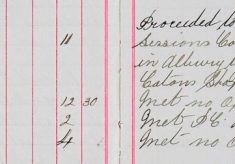 Proceeded to
11 Sessions Co
in Albury
Catons Shop
12 30 Met no O
2 Met P.C.
4 Met no O